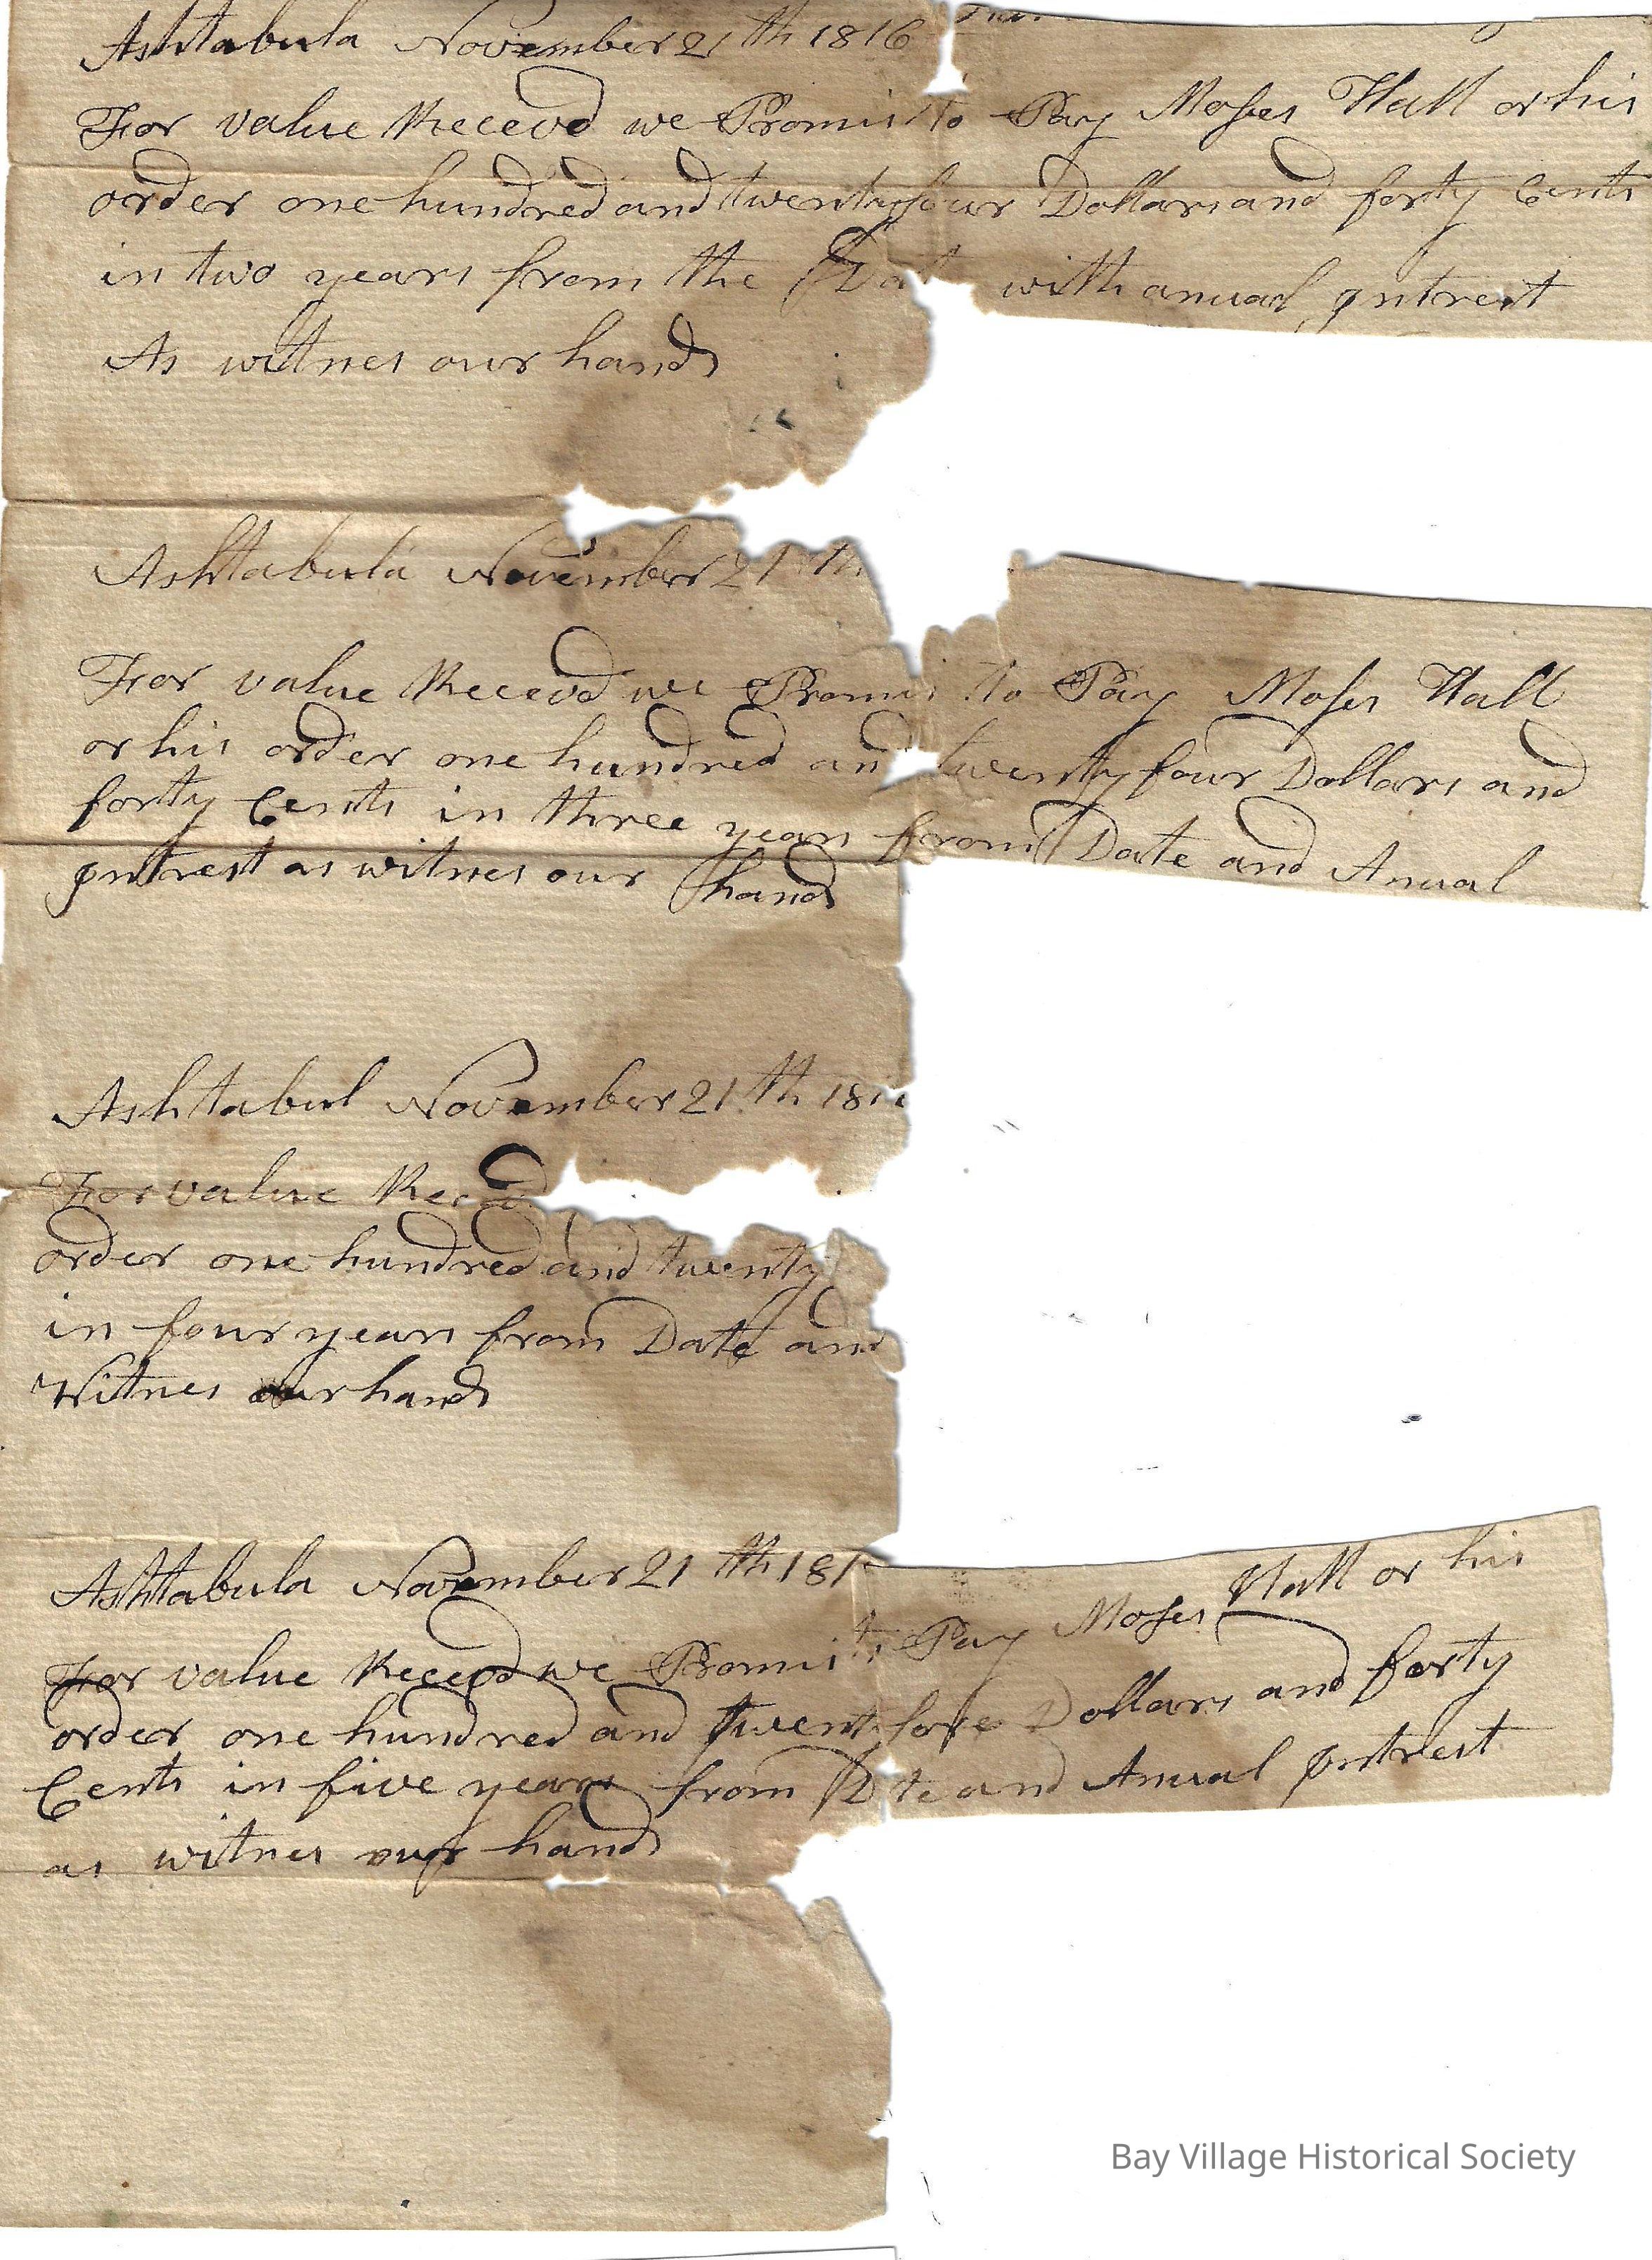 Ashtabula November 21th 1816
For value Receved we Promis to Pay Moses Hall or his
order one hundred and twenty four Dollars and forty Cents
in two years from the Dat with anual Intrest
As witnes our hands
Ashtabula November 21 th
For value Receved we Promis to Pay Moses Hall
or his order one hundred and twenty four Dollars and
forty Cents in three years from Date and Anual
Intrest as witnes our hands
Ashtabul November 21 th 181
For value Recd
order one hundred and twenty
in four years from Date and
Witnes our hands
Ashtabula November 21 th 181
For value Receved we Promis to Pay Moses Hall or his
order one hundred and twent fore Dollars and forty
Cents in five years from D te and Anual Intrest
as witnes our hands
Bay Village Historical Society